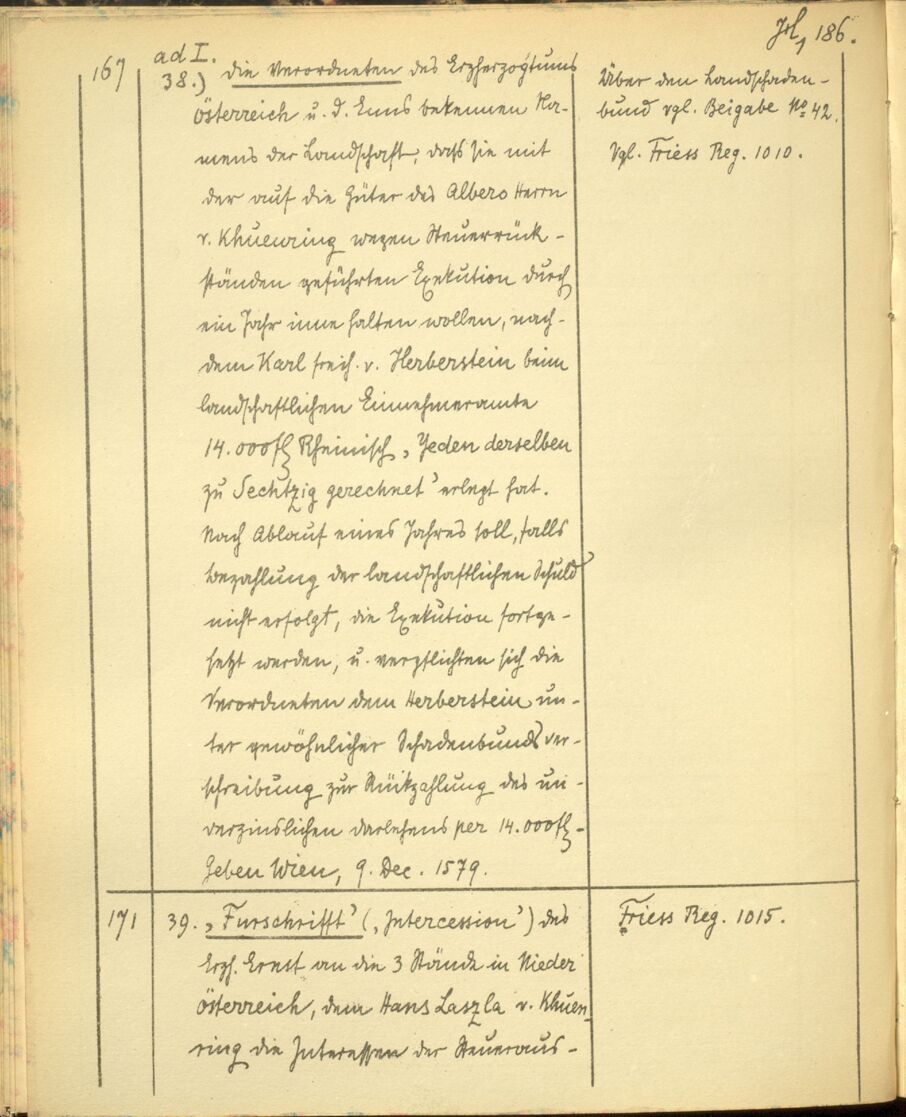 186.
167
ad I.
38.) Die Verordneten des Erzherzogtums
Österreich u. d. Enns bekennen Na-
mens der Landschaft, dass sie mit
der auf die Güter des Albero Herrn
v. Khuenring wegen Steuerrück-
ständen geführten Exekution durch
ein Jahr inne halten wollen, nach-
dem Karl Freih. v. Herberstein beim
landschaftlichen Einnehmeramte
14.000 fl Rheinisch, „Yeden derselben
zu Sechtzig gerechnet" erlegt hat.
Nach Ablauf eines Jahres soll, falls
Bezahlung der landschaftlichen Schuld
nicht erfolgt, die Exekution fortge-
setzt werden, u. verpflichten sich die
Verordneten dem Herberstein un-
ter gewöhnlicher Schadenbundsver-
schreibung zur Rückzahlung des un-
verzinslichen Darlehens per 14.000 fl -
Geben Wien, 9. Dec. 1579.
Über den Landschaden-
bund vgl. Beigabe No 42.
Vgl. Friess Reg. 1010.
171
39. „Furschrifft" („Intercession") des
Erzh. Ernst an die 3 Stände in Nieder
Österreich, dem Hans Laszla v. Khuen-
ring die Interessen der Steueraus-
Friess Reg. 1015.